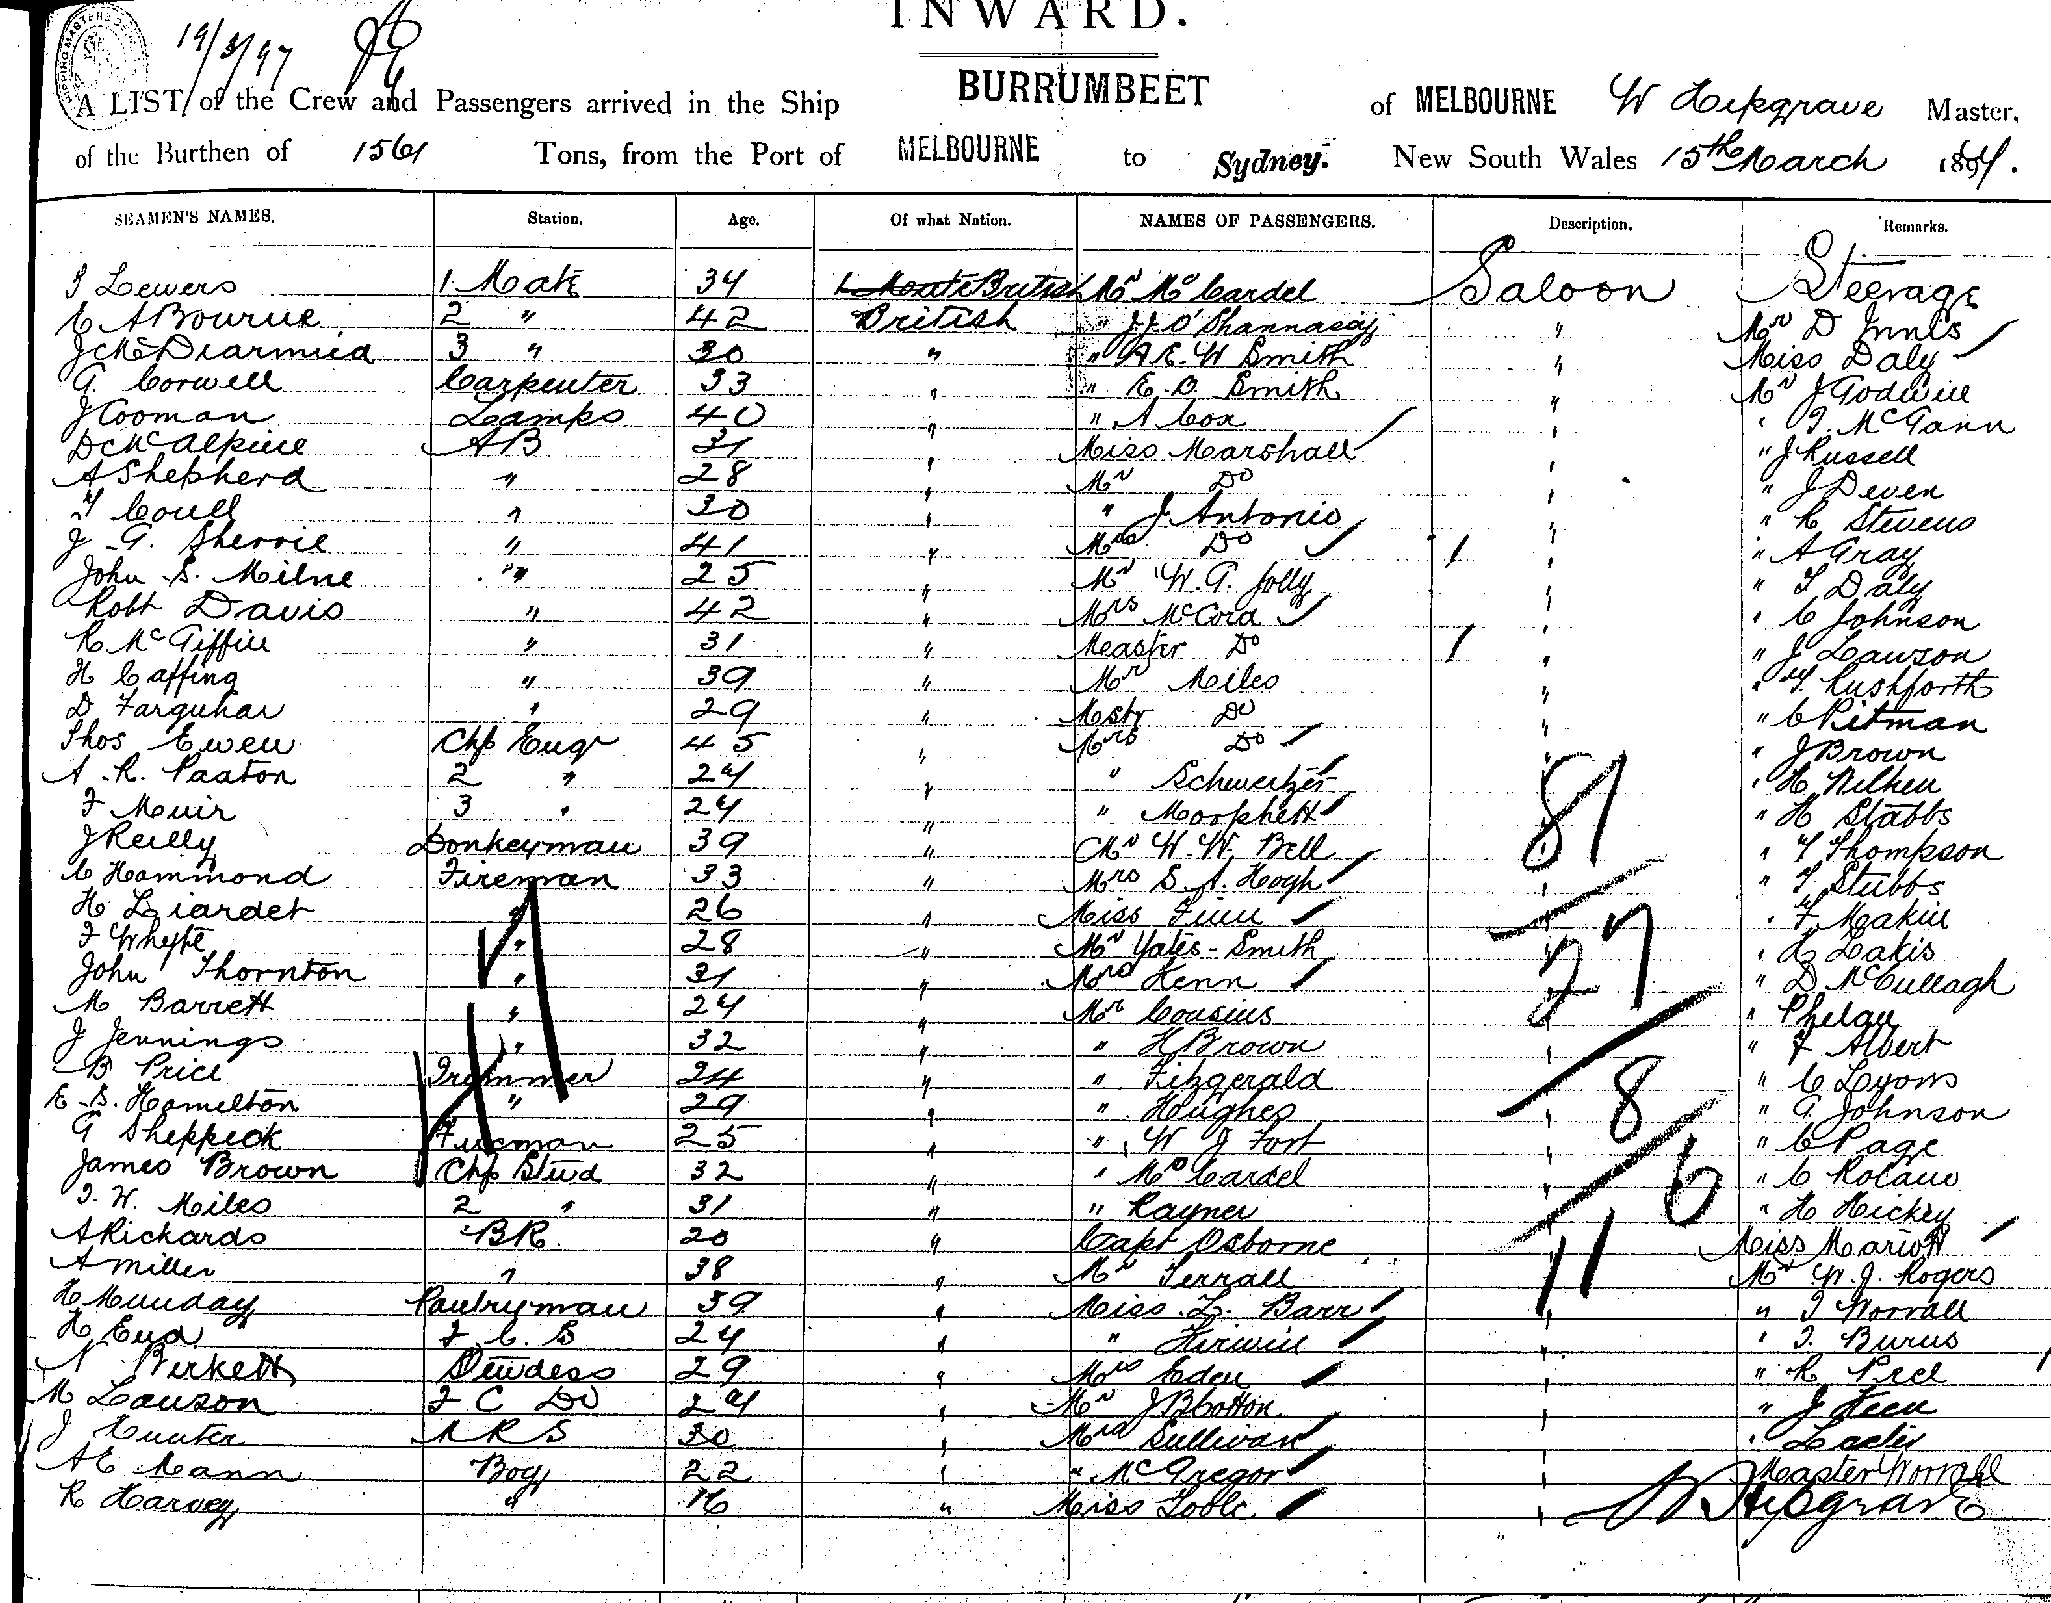 INWARD.
19/3/97
A LIST of the Crew and Passengers arrived in the Ship BURRUMBEET of MELBOURNE W Hipgrave Master,
of the Burthen of 1561 Tons, from the Port of MELBOURNE to Sydney. New South Wales 15th March 1897.
SEAMEN'S NAMES. Station. Age. Of what Nation. NAMES OF PASSENGERS. Description. Remarks.
Lewers 1 Mate 34 1 Mate British Mr McCardel Saloon Steerage
C A Bourne 2 " 42 British " J.J. O'Shannassy " Mr D Innes
J McDiarmid 3 " 30 " " A.E.W Smith " Miss Daly
G. Corwell Carpenter 33 " " E. O. Smith " Mr J Godwin
J Cooman Lamps 40 " " A Cox " " T. McGann
D McAlpine AB 31 " Miss Marshall " " J Russell
A Shepherd " 28 " Mr Do " " J Deven
T Coull " 30 " " J. Antonio " " R Stevens
J. G. Sherrie " 41 " Mrs Do 1 " " A Gray
John S. Milne " 25 " Mr W. G. Jolly " " T Daly
Robt Davis " 42 " Mrs McCord " " C Johnson
R McGiffin " 31 " Master Do 1 " " J Lawson
H Caffing " 39 " Mr Miles " " T. Rushforth
D Farquhar " 29 " Mstr Do " " C Pitman
Thos Ewen Chf Engr 45 " Mrs Do " " J Brown
A. R. Paaton 2 " 24 " " Schweitzer " H Nilken
F Muir 3 " 24 " " Morphett " H Stabbs
J Reilly Donkeyman 39 " Mr W. W. Bell 81 " T Thompson
C Hammond Fireman 33 " Mrs S. A. Hogh " " T Stubbs
H Liardet " 26 " Miss Finn " " F Makin
F Whyte " 28 " Mr Yates-Smith 27 " H Lakis
John Thornton " 31 " Mrs Kenn " " D McCullagh
M Barrett " 24 " Mr Cousins " " Phelan
J Jennings " 32 " " H Brown " " F Albert
B Price Trimmer 24 " " Fitzgerald " " C Lyons
E. S. Hamilton " 29 " " Hughes 8 " G Johnson
G Sheppick Fireman 25 " " W J Fort " " C Page
James Brown Chf Stwd 32 " " McCardel " " C Rolano
T. W. Miles 2 " 31 " " Rayner 6 " H Hickey
A Rickards BR. 20 " Capt Osborne Miss Mariott
A Miller " 38 " Mr Terrall 11 Mr W. J. Rogers
H Munday Pantryman 39 " Miss L. Barr " " T Worrall
H End F C S 24 " " Kirwin " " T. Burns
N Birkett Stewdess 29 " Mrs Eden " " R Peel
M Lawson F C Do 24 " Mr J B Cotton " " J Keen
J Hunter A R S 30 " Mrs Sullivan "
A E Mann Boy 22 " " McGregor " Master Worrall
R Harvey " 16 " Miss Toble " W Hipgrave